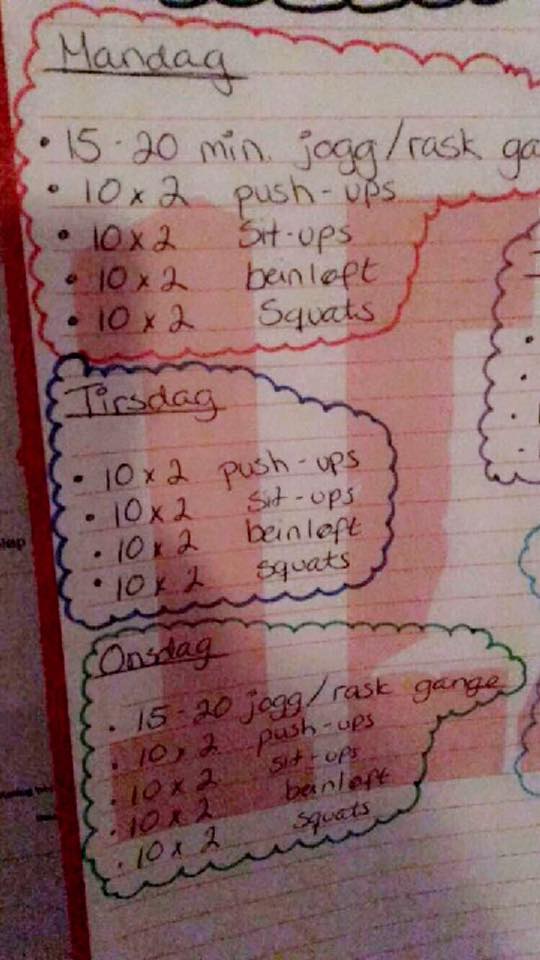 Mandag
• 15-20 min. jogg/rask ga
• 10 x 2 push-ups
• 10 x 2 Sit-ups
• 10 x 2 beinløft
• 10 x 2 Squats
Tirsdag
• 10 x 2 push-ups
• 10 x 2 sit-ups
• 10 x 2 beinløft
• 10 x 2 squats
Onsdag
• 15-20 jogg/rask gange
• 10 x 2 push-ups
• 10 x 2 sit-ups
• 10 x 2 beinløft
• 10 x 2 squats